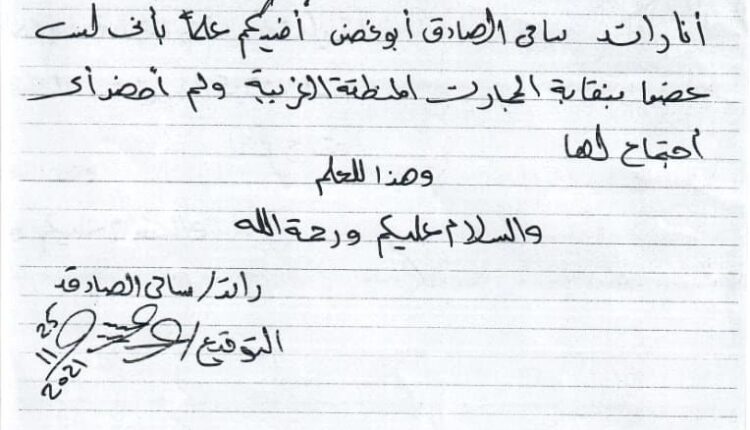 أنا رائد سامى الصادق أبوغضى أفيدكم علماً بأنى لست
عضوا بنقابة المجارت المنطقة الغربية ولم أحضر أى
أجتماع لها
وهذا للعلم
والسلام عليكم ورحمة الله
رائد / سامى الصادق
التوقيع /
25
11
2021